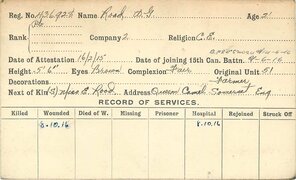 Reg. No. 436924 Name Road, A.G. Age 21
Rank Pte Company 2 Religion C.E.
Date of Attestation 16/2/15 Date of joining 15th Can. Battn. 9-6-16
Height 5'6" Eyes Brown Complexion Fair Original Unit 51
Decorations Farmer
Next of Kin (S) E. Road Address Queen Camel Somerset Eng
RECORD OF SERVICES.
Killed Wounded Died of W. Missing Prisoner Hospital Rejoined Struck Off
8.10.16 8.10.16